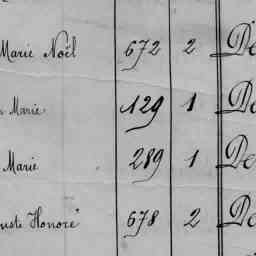 Marie Noël 672 2 De
Marie 129 1 De
Marie 289 1 De
uste Honoré 678 2 De